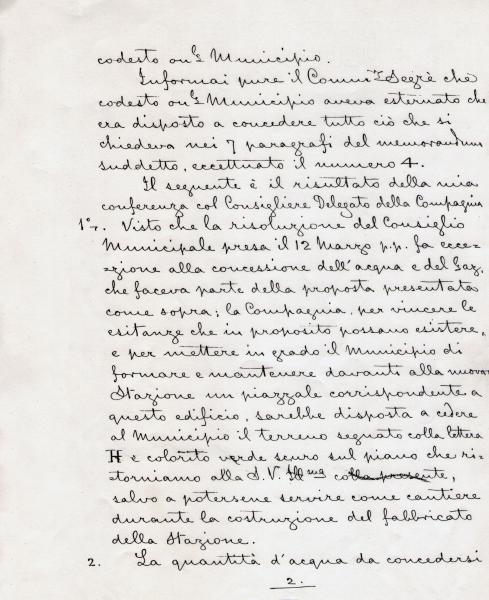 codesto on.le Municipio.
Informai pure il Comm.re Segrè che
codesto on.le Municipio aveva esternato che
era disposto a concedere tutto ciò che si
chiedeva nei 7 paragrafi del memorandum
suddetto, eccettuato il numero 4.
Il seguente è il risultato della mia
conferenza col Consigliere Delegato della Compagnia
1°. Visto che la risoluzione del Consiglio
Municipale presa il 12 Marzo p.p. fa ecce=
=zione alla concessione dell'acqua e del Gaz,
che faceva parte della proposta presentata
come sopra; la Compagnia, per vincere le
esitanze che in proposito possano esistere,
e per mettere in grado il Municipio di
formare e mantenere davanti alla nuova
Stazione un piazzale corrispondente a
questo edificio, sarebbe disposta a cedere
al Municipio il terreno segnato colla lettera
H e colorito verde scuro sul piano che ri=
=torniamo alla S.V. Ill.ma colla presente,
salvo a potersene servire come cantiere
durante la costruzione del fabbricato
della Stazione.
2. La quantità d'acqua da concedersi
2.